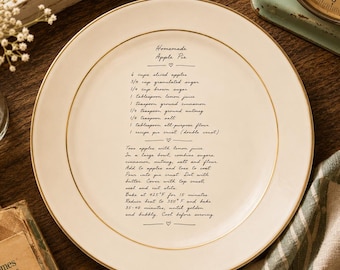 Homemade
Apple Pie
6 cups sliced apples
3/4 cup granulated sugar
1/4 cup brown sugar
1 tablespoon lemon juice
1 teaspoon ground cinnamon
1/4 teaspoon ground nutmeg
1/4 teaspoon salt
2 tablespoon all-purpose flour
1 recipe pie crust (double crust)
Toss apples with lemon juice.
In a large bowl, combine sugars
cinnamon, nutmeg, salt and flour
Add to apples and toss to coat
Pour into pie crust. Dot with
butter. Cover with top crust
seal and cut slits.
Bake at 425°F for 15 minutes
Reduce heat to 350°F and bake
35-40 minutes, until golden
and bubbly. Cool before serving